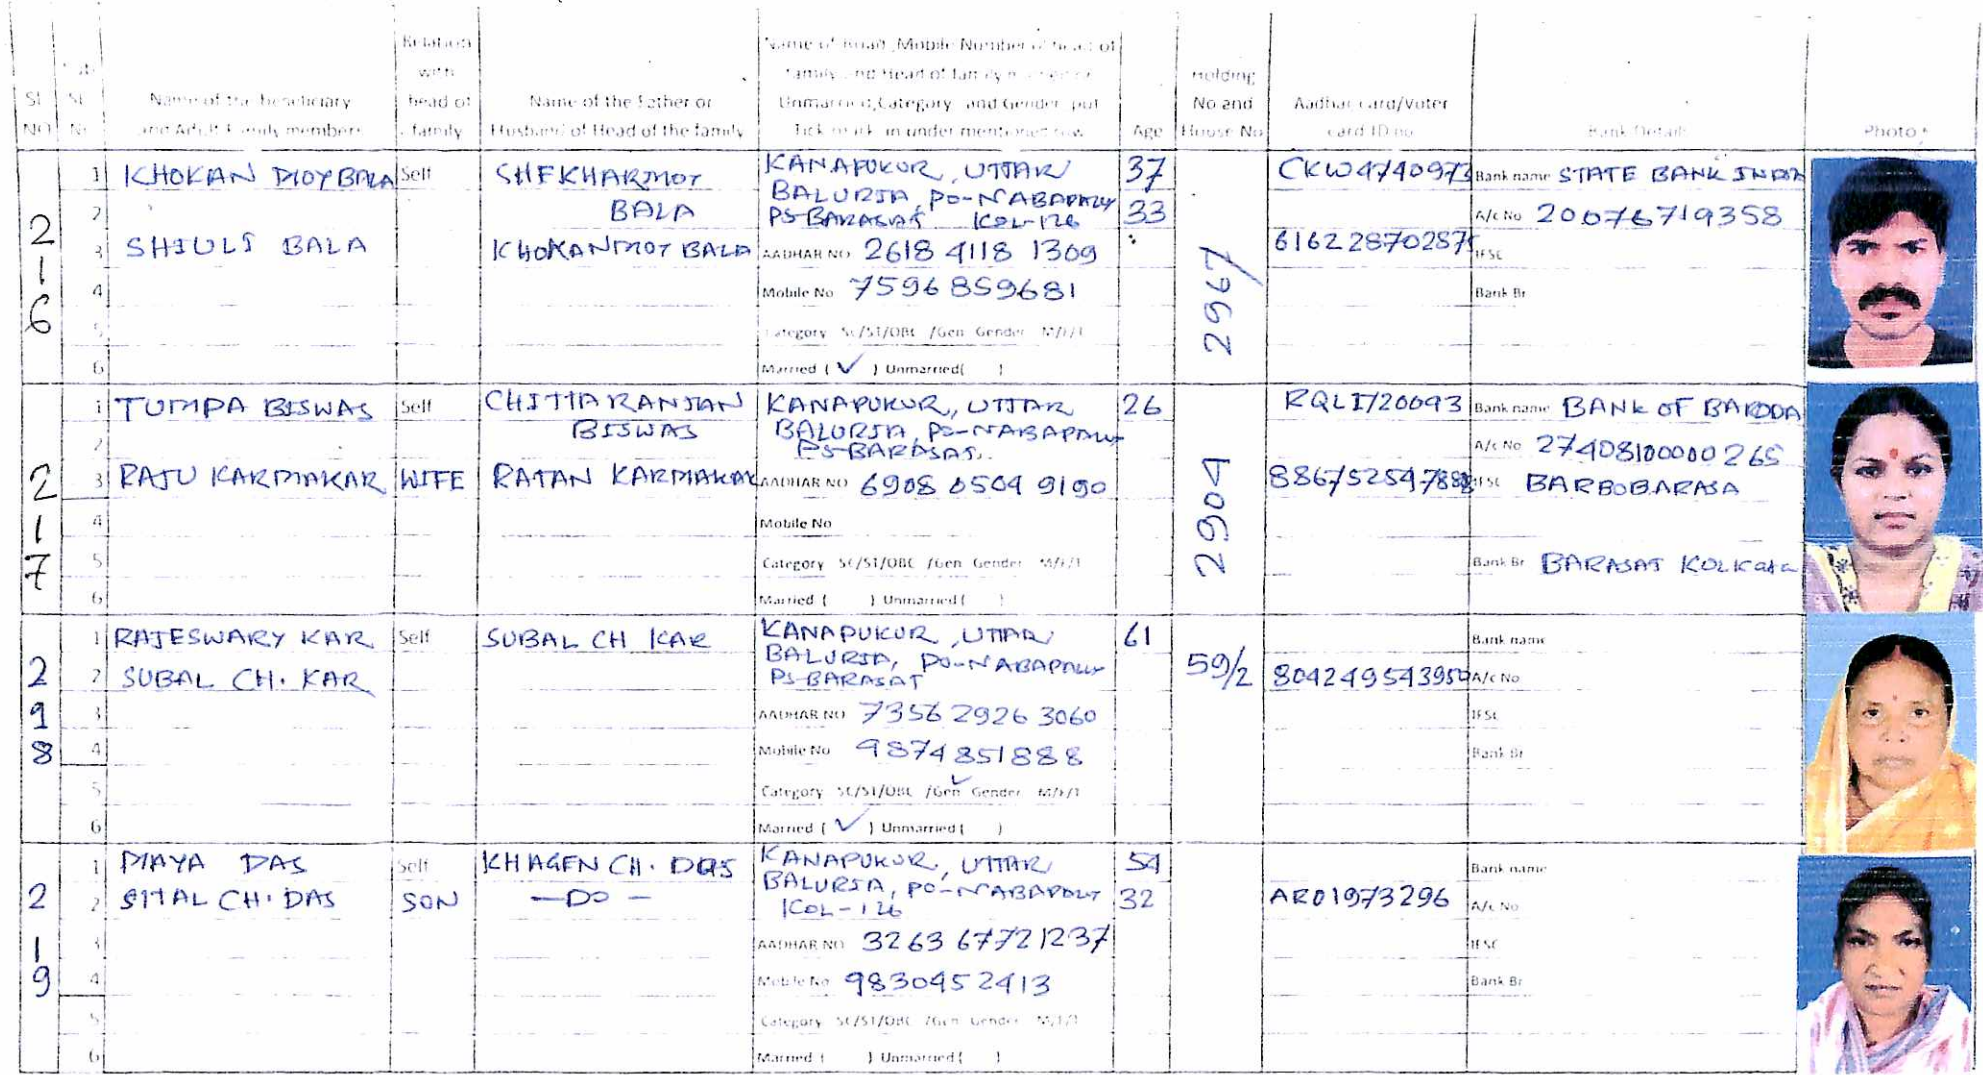 Sl NO
Sub Sl No
Name of the beneficiary and Adult Family members
Relation with head of family
Name of the Father or Husband of Head of the family
Name of Road, Mobile Number of head of family and Head of family
Unmarried, Category and Gender put Tick mark in under mentioned row
Age
Holding No and House No
Aadhar card/Voter card ID no
Bank Details
Photo
216
1 KHOKAN MOY BALA Self SHEKHARMOY BALA
KANAPUKUR, UTTAR
BALURIA, PO-NABAPALLY
PS-BARASAT KOL-126
37
33
2967
CKW4740973
Bank name STATE BANK INDIA
2
A/c No 20076719358
3 SHIULI BALA KHOKANMOY BALA
AADHAR NO 2618 4118 1309
IFSC
4
Mobile No 7596859681
Bank Br
5
Category SC/ST/OBC /Gen Gender M/F/T
6
Married ( ✓ ) Unmarried( )
217
1 TUMPA BISWAS Self CHITTARANJAN BISWAS
KANAPUKUR, UTTAR
BALURIA, PO-NABAPALLY
PS-BARASAT.
26
2904
Bank name BANK OF BARODA
2
A/c No 27408100000265
3 RAJU KARMAKAR WIFE RATAN KARMAKAR
AADHAR NO 6908 0504 9190
IFSC BARB0BARASA
4
Mobile No
5
Category SC/ST/OBC /Gen Gender M/F/T
Bank Br BARASAT KOLKATA
6
Married ( ) Unmarried( )
218
1 RAJESWARY KAR Self SUBAL CH KAR
KANAPUKUR, UTTAR
BALURIA, PO-NABAPALLY
PS-BARASAT
61
59/2
Bank name
2 SUBAL CH. KAR
804249543950
A/c No
3
AADHAR NO 7356 2926 3060
IFSC
4
Mobile No 9874851888
Bank Br
5
Category SC/ST/OBC /Gen ✓ Gender M/F/T
6
Married ( ✓ ) Unmarried( )
219
1 MAYA DAS Self KHAGEN CH. DAS
KANAPUKUR, UTTAR
BALURIA, PO-NABAPALLY
KOL-126
54
Bank name
2 SITAL CH. DAS SON —DO—
32
AR01973296
A/c No
3
AADHAR NO 3263 6772 1237
IFSC
4
Mobile No 9830452413
Bank Br
5
Category SC/ST/OBC /Gen Gender M/F/T
6
Married ( ) Unmarried( )